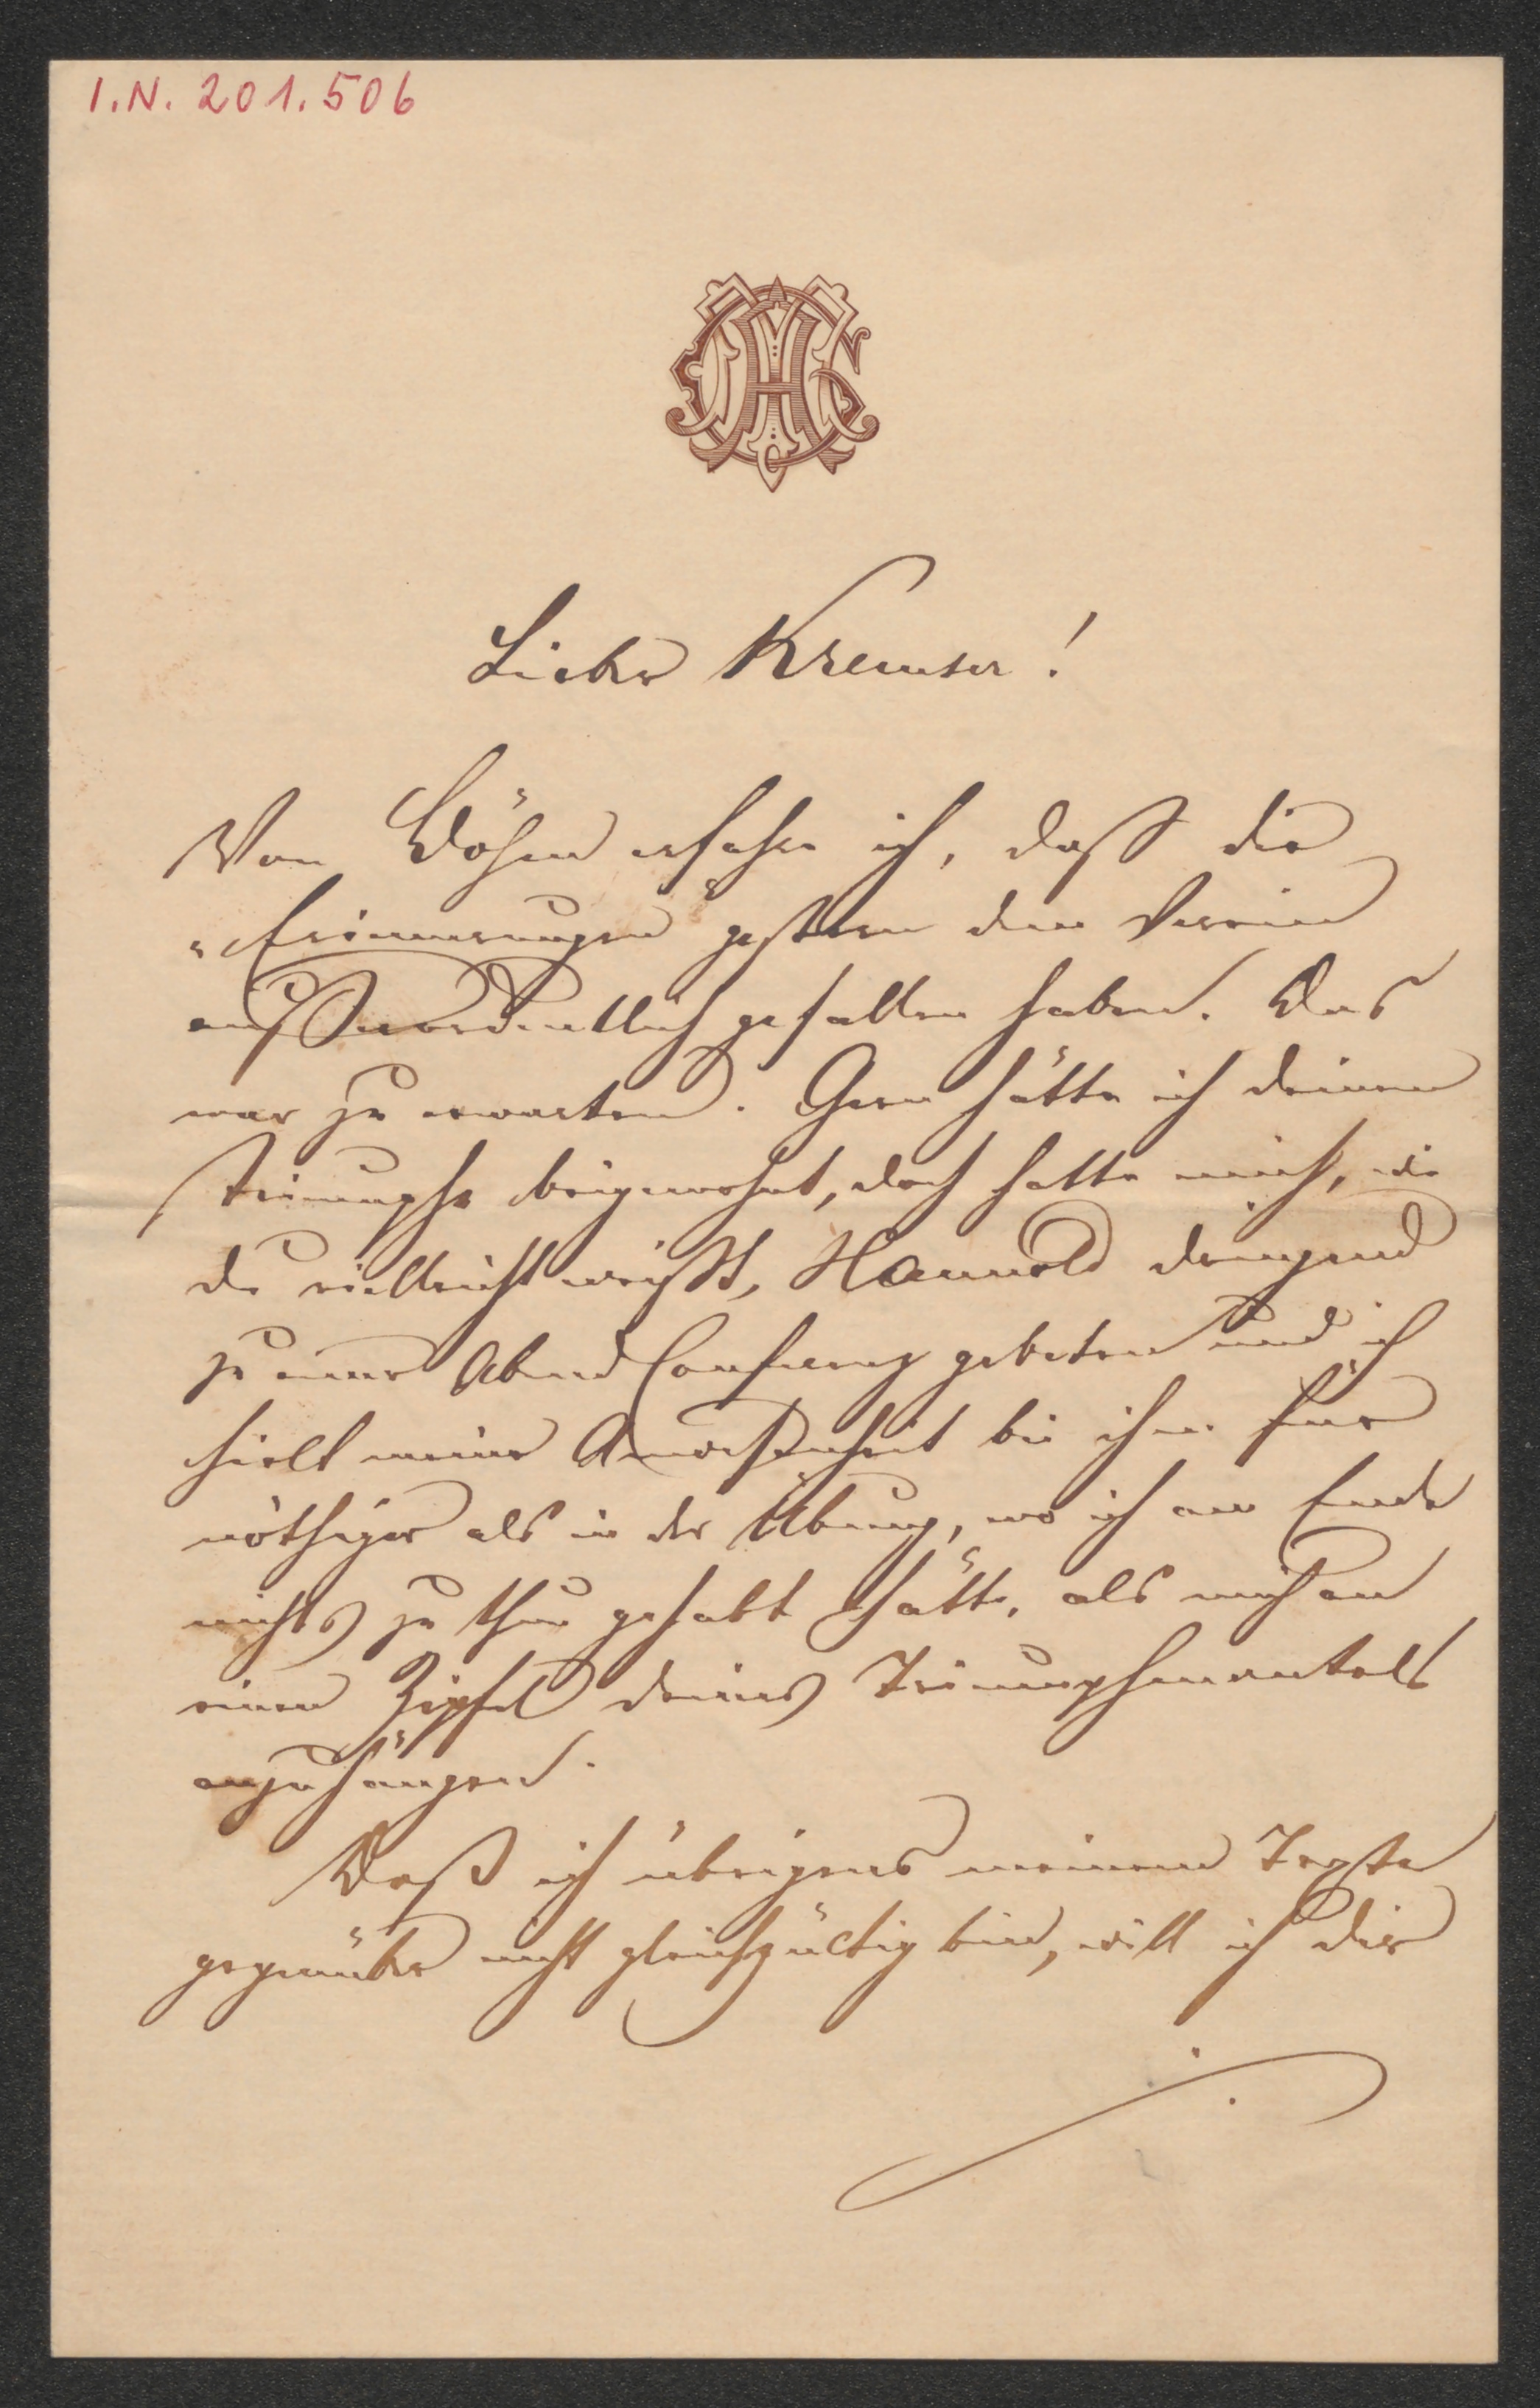 I.N. 201.506
Lieber Kremser!
Von Böhm erfahre ich, daß die
„Erinnerungen“ gestern dem Verein
außerordentlich gefallen haben. Das
war zu erwarten. Gern hätte ich deinem
Triumphe beigewohnt, doch hatte mich, wie
du vielleicht weißt, dringend
zu einer Abend Conferenz gebeten und ich
hielt meine Anwesenheit bei ihm für
nöthiger als in der Übung, wo ich am Ende
nichts zu thun gehabt hätte, als mich an
einen Zipfel deines Triumphmantels
anzuhängen.
Daß ich übrigens meinem Texte
gegenüber nicht gleichgültig bin, will ich dir